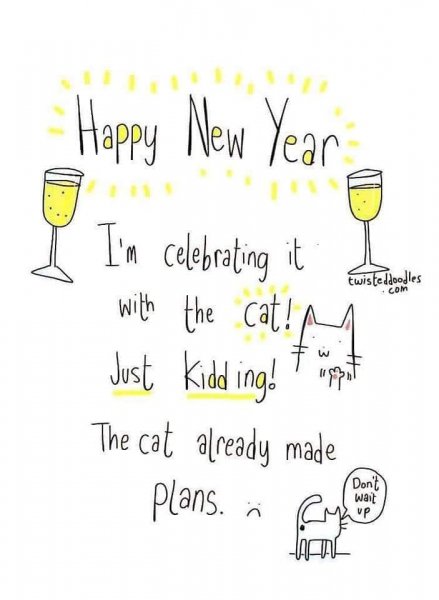 Happy New Year
I'm celebrating it
twisteddoodles
.com
with the cat!
Just Kidding!
The cat already made
Plans. :(
Don't
wait
up